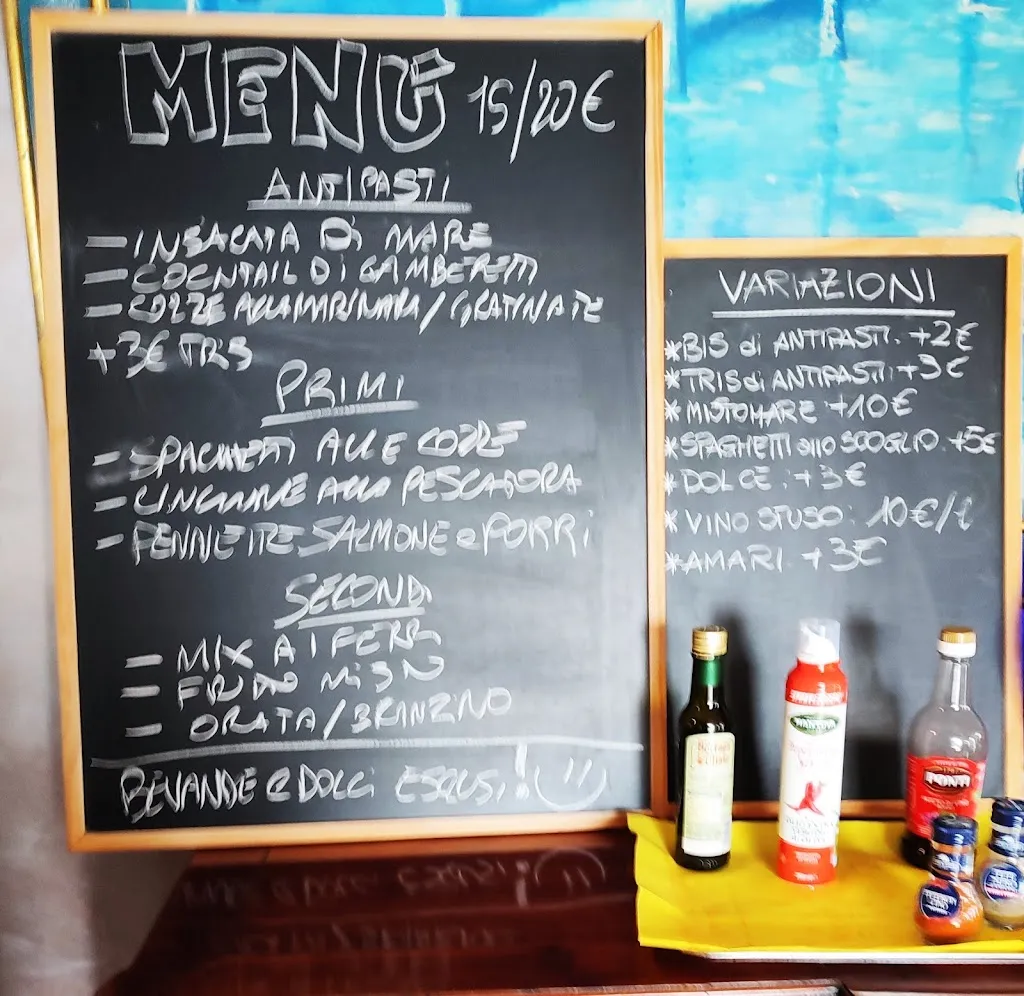 MENÙ 15/20€
ANTIPASTI
- INSALATA Di MARE
- COCNTAIL Di GAMBERETTI
- COZZE ALLA MARINARA / GRATINATE
+3€ TRIS
PRIMI
- SPAGHETTI ALLE COZZE
- LINGUINE ALLA PESCATORA
- PENNETTE SALMONE e PORRi
SECONDi
- MIX AI FERRi
- FRITTO MISTO
- ORATA/BRANZINO
BEVANDE e DOLCi ESCLUSi!
VARIAZIONI
*BIS di ANTIPASTI. +2€
*TRIS di ANTIPASTI: +3€
*MISTO MARE +10€
*SPAGHETTI allo SCOGLIO. +5€
*DOLCE: +3€
*VINO SFUSO: 10€/l
*AMARI. +3€
MANTOVA
PONTI